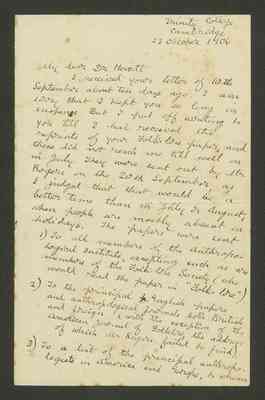 Trinity College
Cambridge
22 October 1906
My dear Dr. Howitt
I received your letter of 10th
September about ten days ago. I am
sorry that I kept you so long in
suspense. But I put off writing to
you till I had received the
reprints of your Folklore paper, and
these did not reach me till well on
in July. They were sent out by Mr.
Rogers on the 20th September, as
I judged that that would be a
better time than in July or August,
when people are mostly absent on
holidays. The papers were sent
1) To all members of the Anthropo-
logical Institute, excepting such as are
members of the Folk-lore Society (who
would read the paper in "Folk-lore")
2) To the principal English papers
and anthropological journals both British
and foreign (with the exception of the
American Journal of Folklore, the address
of which Mr. Rogers failed to find)
3) To a list of the principal anthropo-
logists in America and Europe, to whom